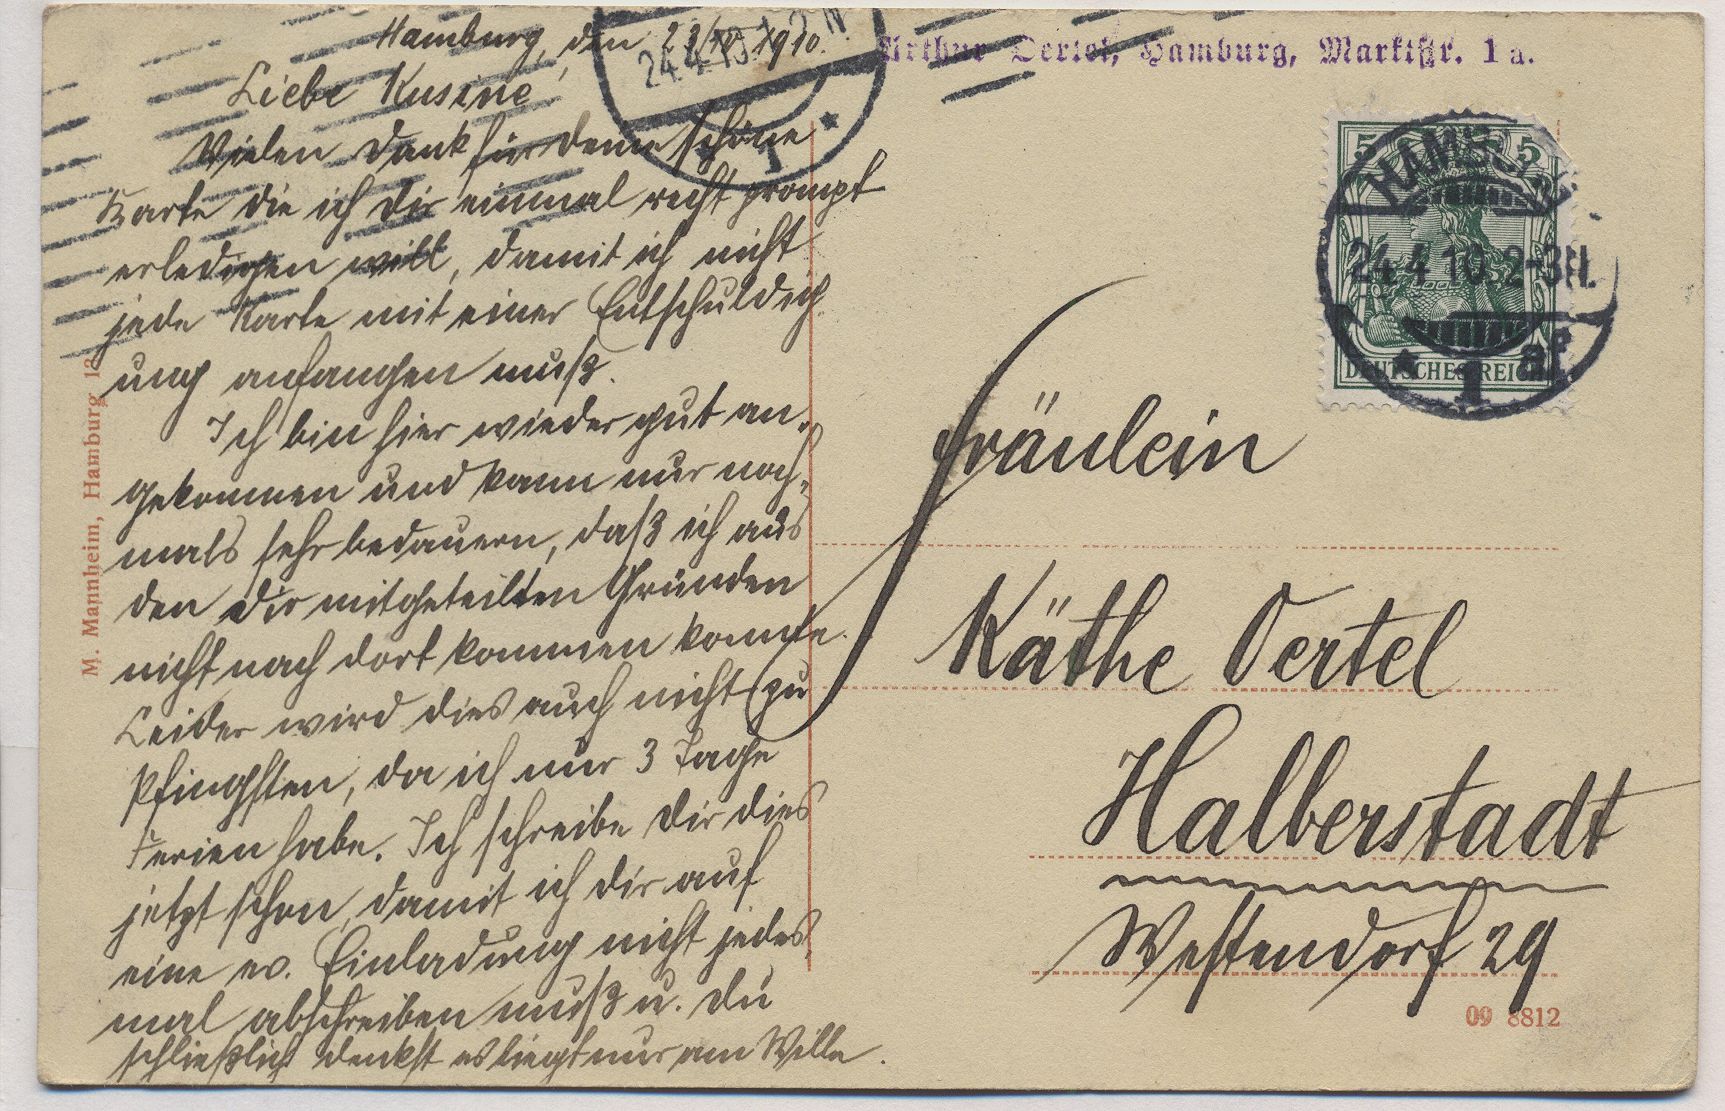 Hamburg, den 23/IV 1910.
Liebe Kusine
Vielen Dank für deine schöne
Karte die ich dir einmal recht prompt
erledigen will, damit ich nicht
jede Karte mit einer Entschuldig-
ung anfangen muß.
Ich bin hier wieder gut an-
gekommen und kann nur noch-
mals sehr bedauern, daß ich aus
den dir mitgeteilten Gründen
nicht nach dort kommen konnte.
Leider wird dies auch nicht zu
Pfingsten, da ich nur 3 Tage
Ferien habe. Ich schreibe dir dies
jetzt schon, damit ich dir auf
eine ev. Einladung nicht jedes-
mal abschreiben muß u. du
schließlich denkst es liegt nur am Wille.
24.4.10. 2-3N
1
Arthur Oertel, Hamburg, Marktstr. 1a.
5 5
DEUTSCHES REICH
HAMBURG
24.4.10. 2-3N.
* 1 af
Fräulein
Käthe Oertel
Halberstadt
Westendorf 29
09 8812
M. Mannheim, Hamburg 13